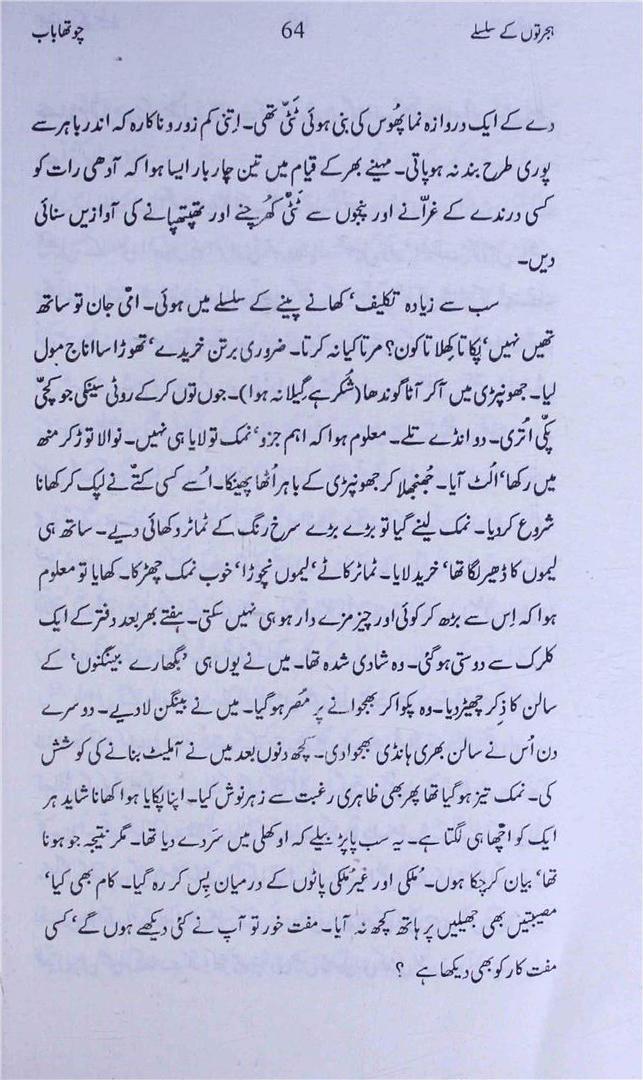 ہجرتوں کے سلسلے 64 چوتھا باب
دے کے ایک دروازہ نما پھُوس کی بنی ہوئی ٹَٹّی تھی۔ اِتنی کم زور و ناکارہ کہ اندر باہر سے
پوری طرح بند نہ ہو پاتی۔ مہینے بھر کے قیام میں تین چار بار ایسا ہوا کہ آدھی رات کو
کسی درندے کے غرّانے اور پنجوں سے ٹَٹّی کھُرچنے اور تھپتھپانے کی آوازیں سنائی
دیں۔
سب سے زیادہ تکلیف، کھانے پینے کے سلسلے میں ہوئی۔ امّی جان تو ساتھ
تھیں نہیں، پکاتا کھِلاتا کون؟ مرتا کیا نہ کرتا۔ ضروری برتن خریدے، تھوڑا سا اناج مول
لیا۔ جھونپڑی میں آ کر آٹا گوندھا (شُکر ہے گیلا نہ ہوا)۔ جوں توں کر کے روٹی سینکی جو کچّی
پکّی اُتری۔ دو انڈے تلے۔ معلوم ہوا کہ اہم جزو، نمک تو لایا ہی نہیں۔ نوالا توڑ کر منھ
میں رکھا، اُلٹ آیا۔ جھُنجھلا کر جھونپڑی کے باہر اُٹھا پھینکا۔ اُسے کسی کتّے نے لپک کر کھانا
شروع کر دیا۔ نمک لینے گیا تو بڑے بڑے سرخ رنگ کے ٹماٹر دکھائی دیے۔ ساتھ ہی
لیموں کا ڈھیر لگا تھا، خرید لایا۔ ٹماٹر کاٹے، لیموں نچوڑا، خوب نمک چھڑکا۔ کھایا تو معلوم
ہوا کہ اِس سے بڑھ کر کوئی اور چیز مزے دار ہو ہی نہیں سکتی۔ ہفتے بھر بعد دفتر کے ایک
کلرک سے دوستی ہو گئی۔ وہ شادی شدہ تھا۔ میں نے یوں ہی ’بگھارے بینگنوں‘ کے
سالن کا ذِکر چھیڑ دیا۔ وہ پکوا کر بھجوانے پر مُصر ہو گیا۔ میں نے بینگن لا دیے۔ دوسرے
دن اُس نے سالن بھری ہانڈی بھجوا دی۔ کچھ دنوں بعد میں نے آملیٹ بنانے کی کوشش
کی۔ نمک تیز ہو گیا تھا پھر بھی ظاہری رغبت سے زہر نوش کیا۔ اپنا پکایا ہوا کھانا شاید ہر
ایک کو اچھا ہی لگتا ہے۔ یہ سب پاپڑ بیلے کہ اوکھلی میں سَر دے دیا تھا۔ مگر نتیجہ جو ہونا
تھا، بیان کر چکا ہوں۔ مُلکی اور غیر مُلکی پاٹوں کے درمیان پِس کر رہ گیا۔ کام بھی کیا،
مصیبتیں بھی جھیلیں پر ہاتھ کچھ نہ آیا۔ مفت خور تو آپ نے کئی دیکھے ہوں گے، کسی
مفت کار کو بھی دیکھا ہے ؟